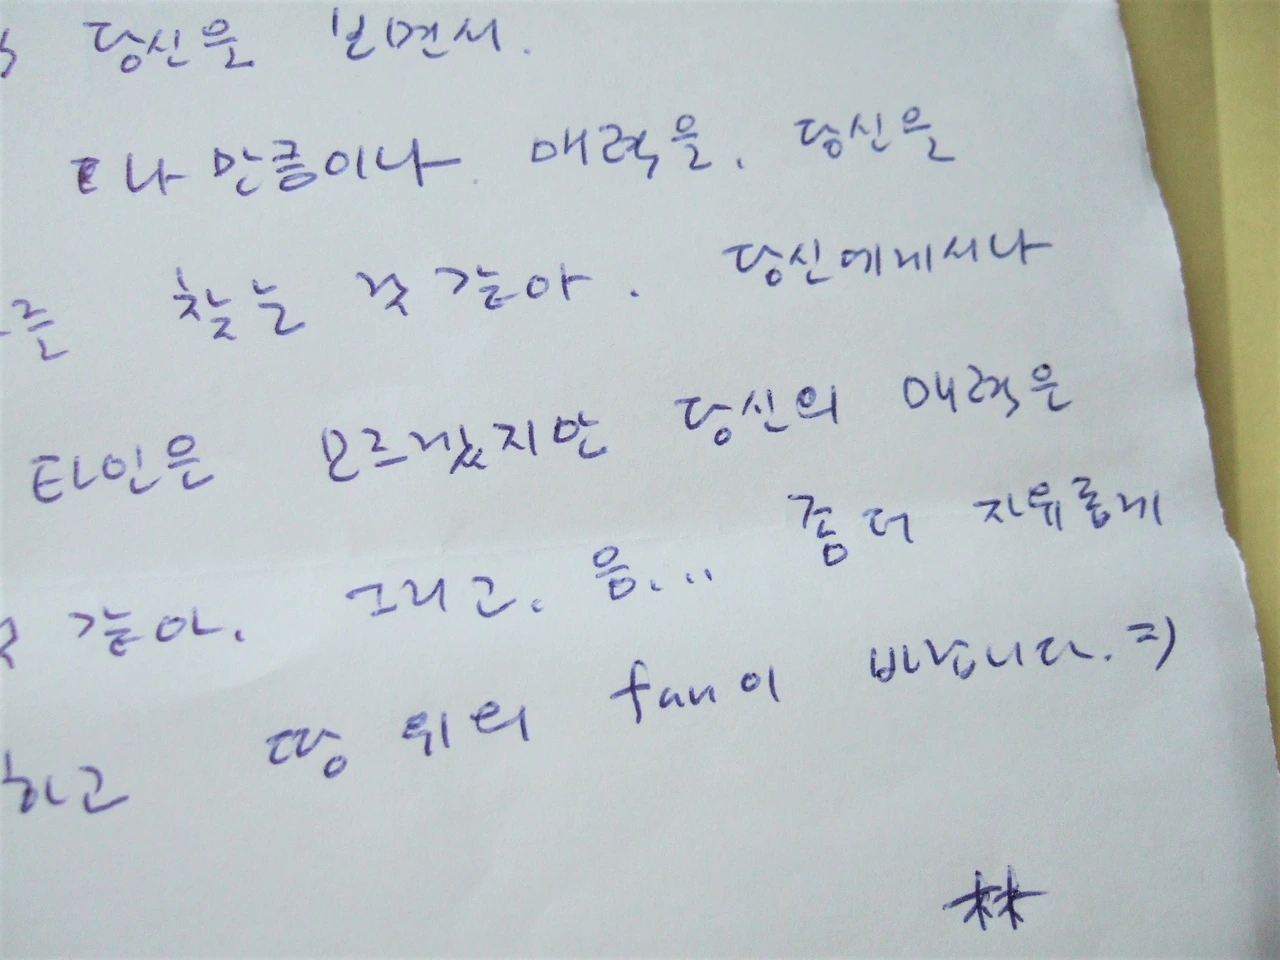 당신을 보면서.
만큼이나 매력을. 당신을
찾는 것 같아. 당신에게서나
타인은 모르겠지만 당신의 매력은
것 같아. 그리고. 음... 좀 더 자유롭게
하고 땅 위의 fan이 바랍니다. =)
林